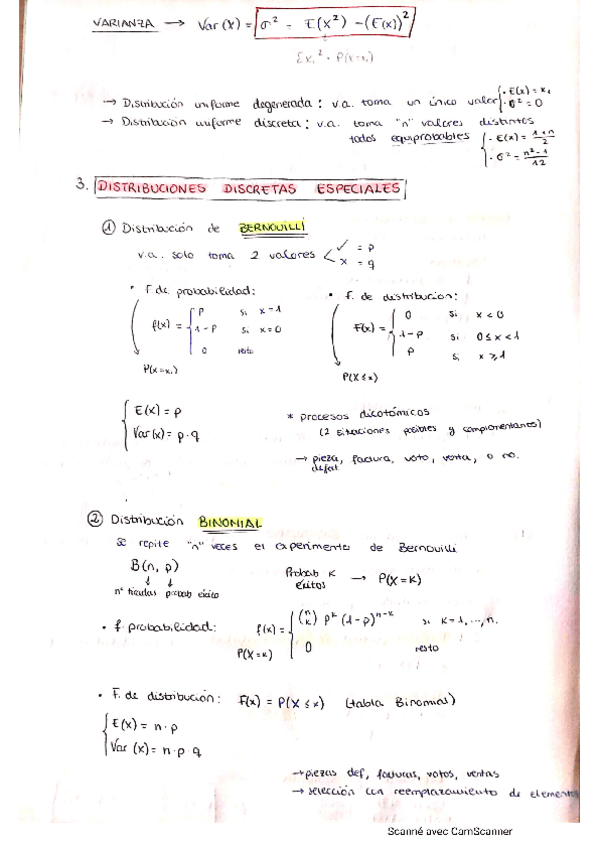 VARIANZA → Var(X) = σ² = E(X²) - (E(X))²
Σxᵢ² · P(X=xᵢ)
→ Distribución uniforme degenerada: v.a. toma un único valor { · E(x) = x₁ · σ² = 0
→ Distribución uniforme discreta: v.a. toma "n" valores distintos
todos equiprobables { · E(x) = 1+n/2 · σ² = n²-1/12
3. DISTRIBUCIONES DISCRETAS ESPECIALES
① Distribución de BERNOUILLI
v.a. solo toma 2 valores < ✓ = p
x = q
• f de probabilidad: • F. de distribución:
f(x) = { p si x=1 F(x) = { 0 si x<0
1-p si x=0 1-p si 0≤x<1
0 resto p si x≥1
P(X=xᵢ) P(X≤x)
{ E(x) = p * procesos dicotómicos
Var(x) = p·q (2 situaciones posibles y complementarias)
→ pieza, factura, voto, venta, o no.
defect.
② Distribución BINONIAL
se repite "n" veces el experimento de Bernouilli
B(n, p) Probab K éxitos → P(X=K)
↓ ↓
nº probab éxito
• f. probabilidad: f(x) = { (n k) pᵏ (1-p)ⁿ⁻ᵏ si K=1,...,n.
P(X=K) 0 resto
• F. de distribución: F(x) = P(X≤x) (tabla Binomial)
{ E(x) = n·p
Var(x) = n·p·q
→ piezas def, facturas, votos, ventas
→ selección con reemplazamiento de elementos
Scanné avec CamScanner